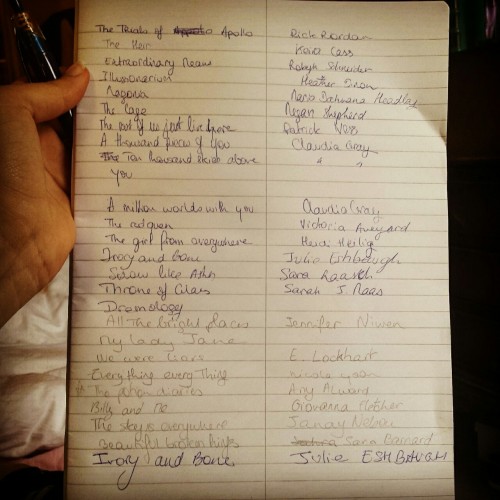 The Trials of Apollo Rick Riordan
The Heir Kiera Cass
Extraordinary Means Robyn Schneider
Illusionarium Heather Dixon
Magonia Maria Dahvana Headley
The Cage Megan Shepherd
The Rest of us just live here Patrick Ness
A thousand pieces of You Claudia Gray
Ten thousand skies above " "
You
A million worlds with you Claudia Gray
The red queen Victoria Aveyard
The girl from everywhere Heidi Heilig
Ivory and Bone Julie Eshbaugh
Snow like Ashes Sara Raasch
Throne of Glass Sarah J. Maas
Dramology
All The bright places Jennifer Niven
My lady Jane
We were liars E. Lockhart
Everything every Thing nicola yoon
The potion diaries Amy Alward
Billy and Me Giovanna Fletcher
The sky is everywhere Jandy Nelson
Beautiful broken things Sara Barnard
Ivory and Bone Julie ESHBAUGH